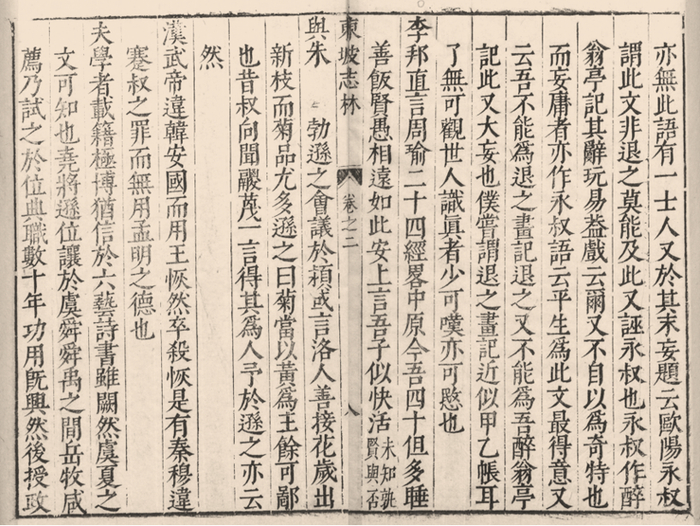 亦無此語有一士人又於其末妄題云歐陽永叔
謂此文非退之莫能及此又誣永叔也永叔作醉
翁亭記其辭玩易葢戲云爾又不自以為奇特也
而妄庸者亦作永叔語云平生為此文最得意又
云吾不能為退之畫記退之又不能為吾醉翁亭
記此又大妄也僕嘗謂退之畫記近似甲乙帳耳
了無可觀世人識眞者少可嘆亦可愍也
李邦直言周瑜二十四經畧中原今吾四十但多睡
善飯賢愚相遠如此安上言吾子似快活未知孰賢與否
東坡志林
卷之二
八
與朱勃遜之會議於潁或言洛人善接花歲出
新枝而菊品尤多遜之曰菊當以黃為王餘可鄙
也昔叔向聞鬷蔑一言得其為人予於遜之亦云
然
漢武帝違韓安國而用王恢然卒殺恢是有秦穆違
蹇叔之罪而無用孟明之德也
夫學者載籍極博猶信於六藝詩書雖闕然虞夏之
文可知也堯將遜位讓於虞舜舜禹之間岳牧咸
薦乃試之於位典職數十年功用旣興然後授政